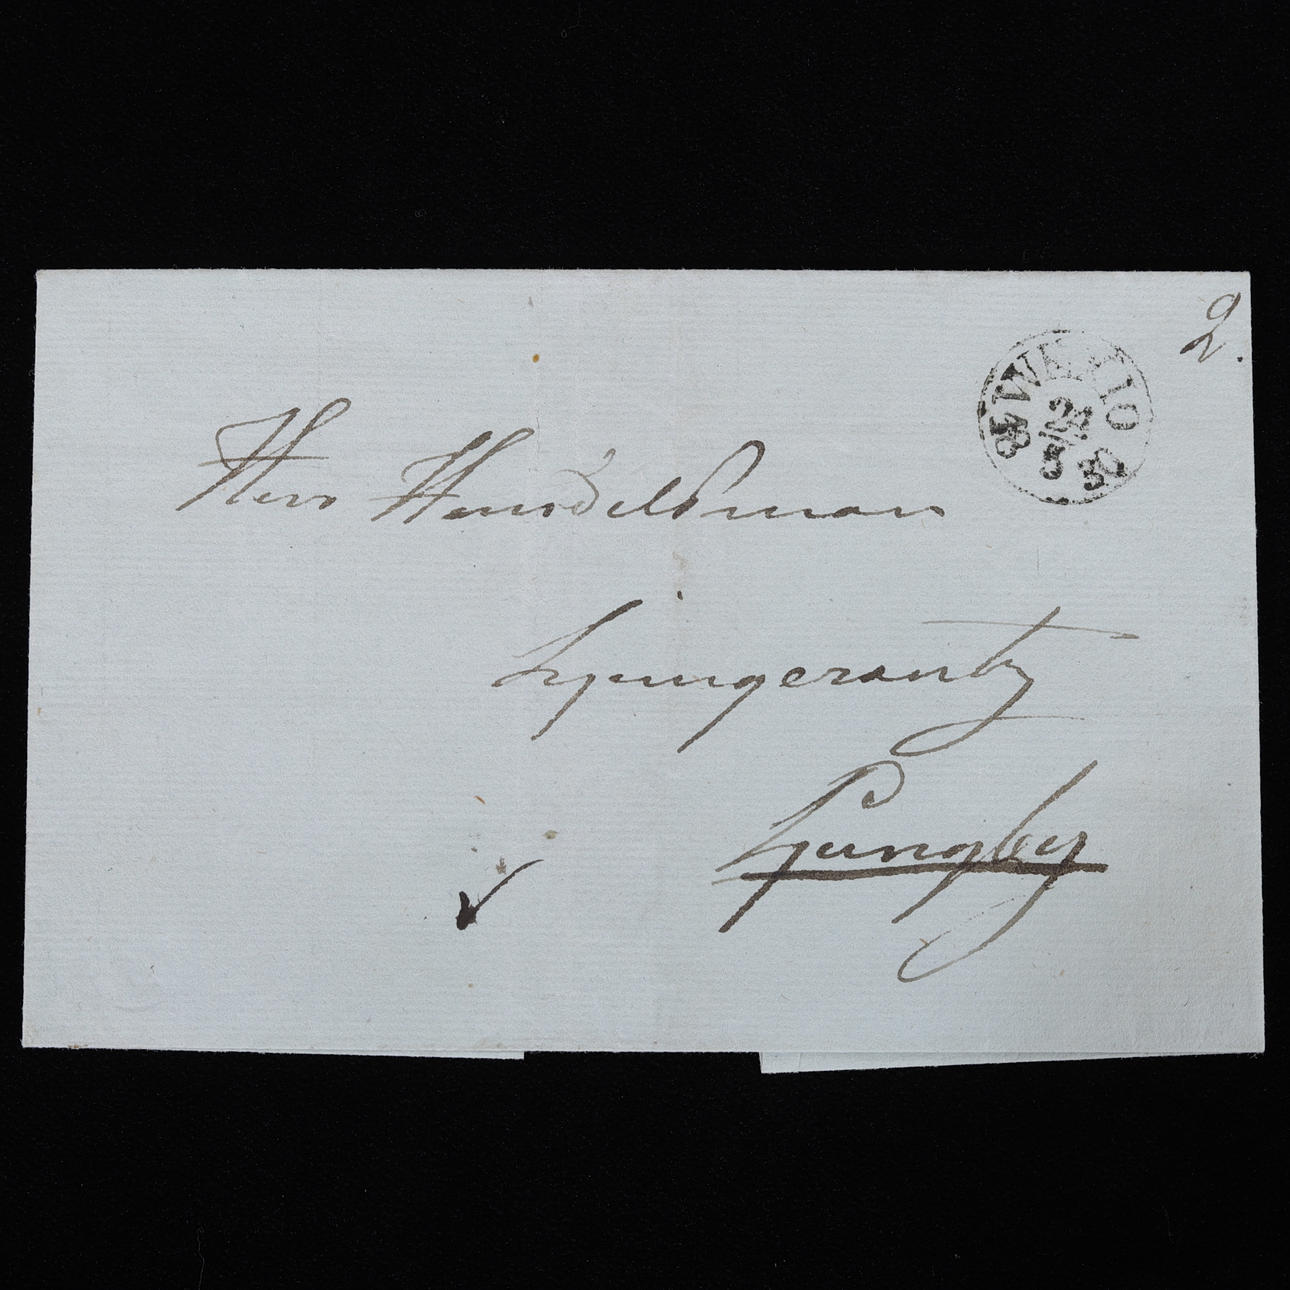 2.
WEXIO
24
5
30
Herr Handelsman
Ljungcrantz
Ljungby